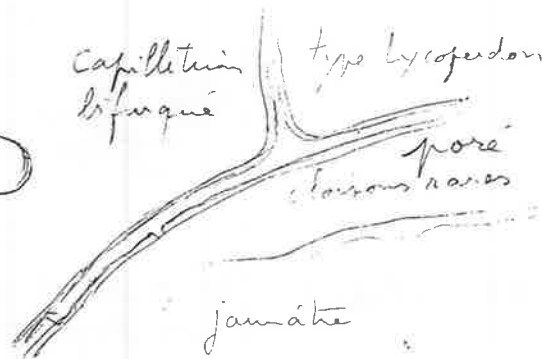 Capillitium
bifurqué
type Lycoperdon
poré
cloisons rares
jaunâtre